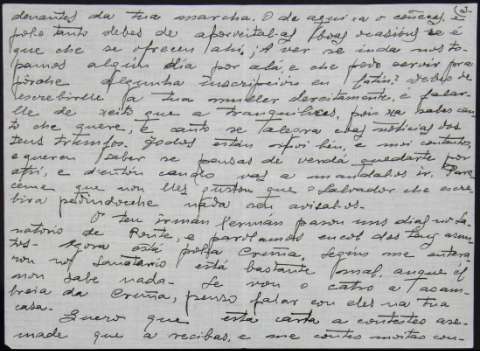 denantes da tua marcha. O de aquí xa o coñeces, e (2).
polo tanto debes de aproveitalas boas ocasións se é
que che se ofrecen ahí. ¡A ver se inda nos to-
pamos algún día por alá, e che podo servir pra
porche algunha inscripción en latín? Debes de
escrebirlle a tua muller dereitamente, e falar-
lle de xeito que a tranquilices, pois xa sabes can-
to che quere, e canto se alegra coas noticias dos
teus trunfos. Todos están moi ben, e moi contentos,
e queren saber se pensas de verdá quedarte por
ahí, e dentón cando vas a mandalos ir. Pare-
ceme que non lles gustou que o Salvador che escre-
bira pedindoche nada sin avisalos.
O teu irmán Fermín pasou uns días no Sa-
natorio de Ponte, e parolamos encol dos teus asun-
tos. Agora está pola Cruña. Segun me entera-
ron no Sanatorio está bastante mal, anque él
non sabe nada. Se vou o catro a
da Cruña, penso falar con eles na tua
casa.
Quero que esta carta a contestes
made que a recibas, e me contes moitas cou-